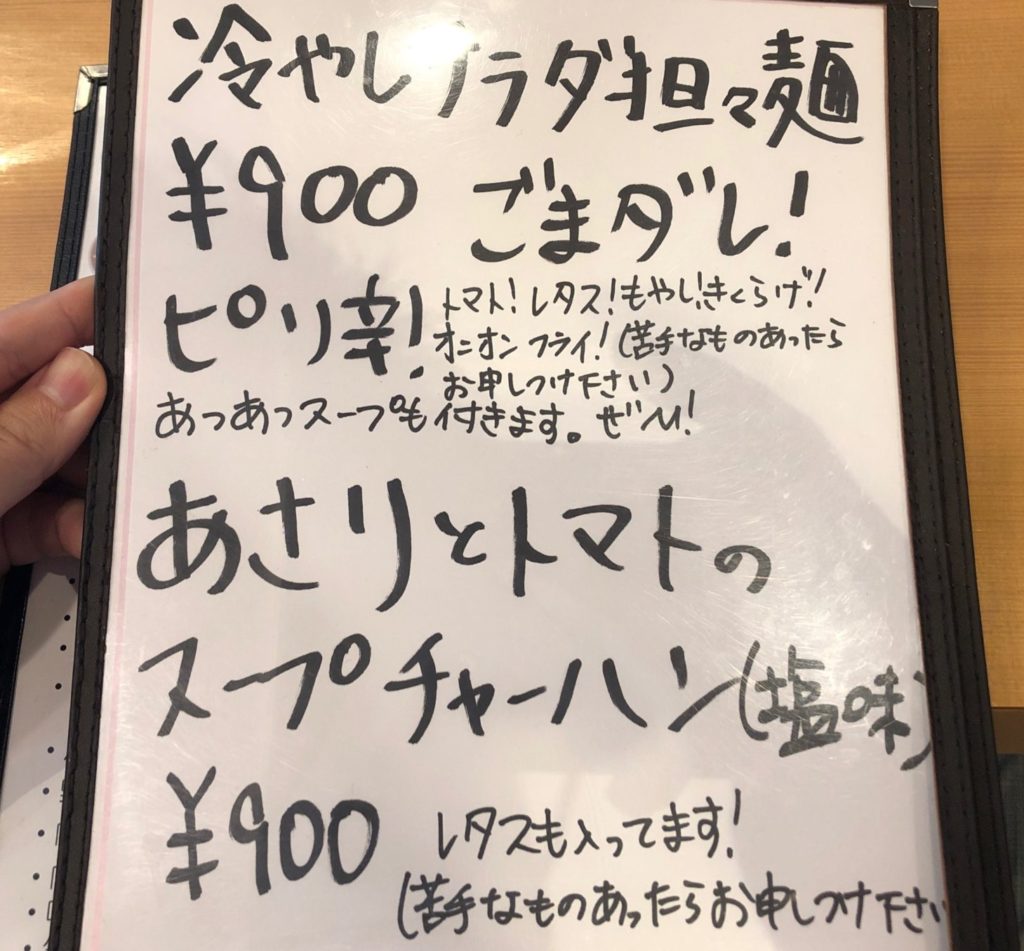 冷やしサラダ担々麺
¥900 ごまダレ!
ピリ辛! トマト!レタス!もやし!きくらげ!
オニオンフライ!(苦手なものあったら
お申しつけ下さい)
あつあつスープも付きます。ぜひ!
あさりとトマトの
スープチャーハン(塩味)
¥900 レタスも入ってます!
(苦手なものあったらお申しつけ下さい